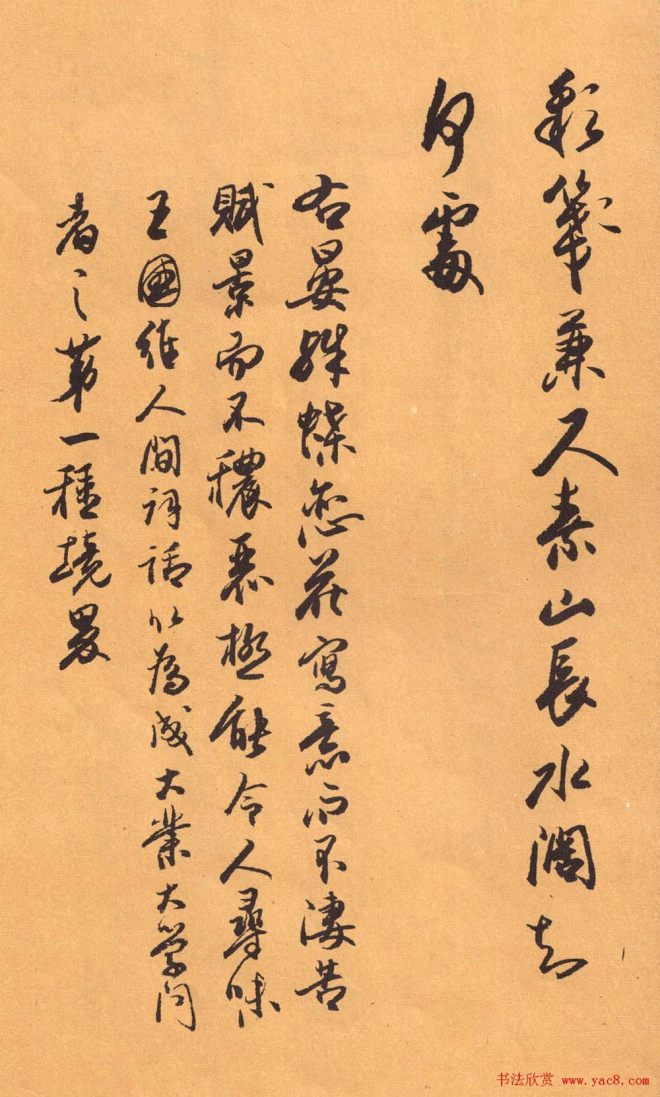 彩箋兼尺素山長水闊知
何處
右晏殊蝶恋花寫意而不淒苦
賦景而不穠極能令人尋味
王國維人間詞話以為成大業大学问
者之第一種境界
书法欣赏 www.yac8.com